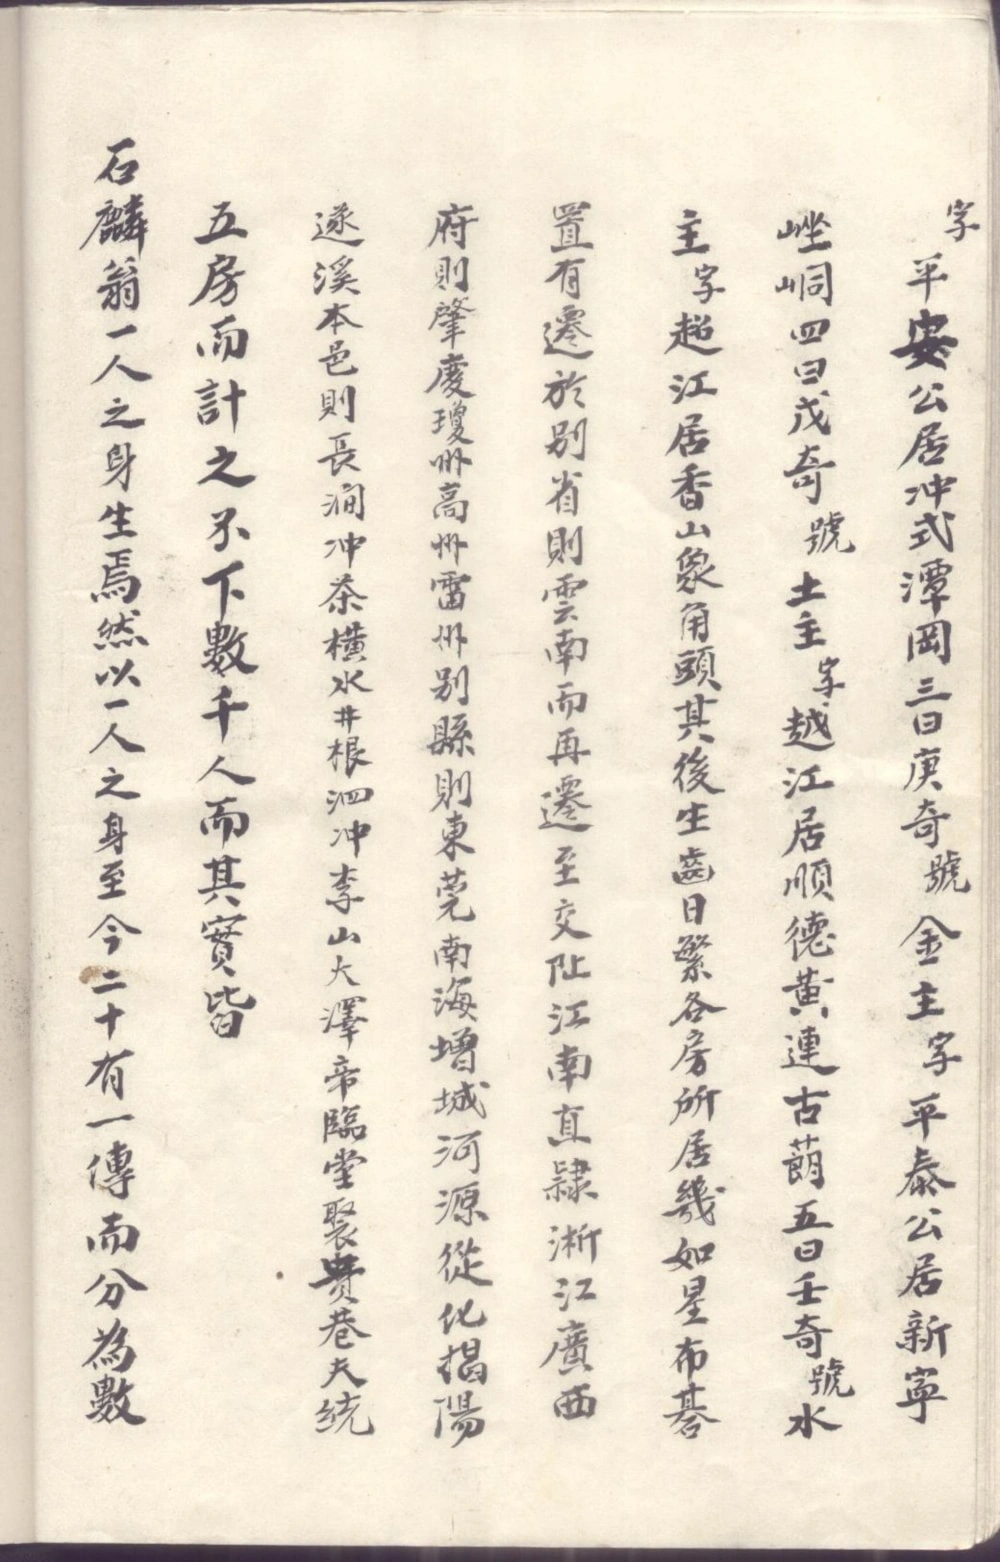 字平安公居冲式潭岡三曰庚奇號金主字平泰公居新寧
㘴峒四曰茂奇號土主字越江居順德黃連古蓢五曰壬奇號水
主字超江居香山象角頭其後生齒日繁各房所居幾如星布碁
置有遷於别省則雲南而再遷至交阯江南直隷淅江廣西
府則肇慶瓊州高州雷州别縣則東莞南海增城河源從化揭陽
遂溪本邑則長澗冲茶橫水井根泗冲李山大澤帝臨堂聚貴巷夫統
五房而計之不下數千人而其實皆
石麟翁一人之身生焉然以一人之身至今二十有一傳而分為數